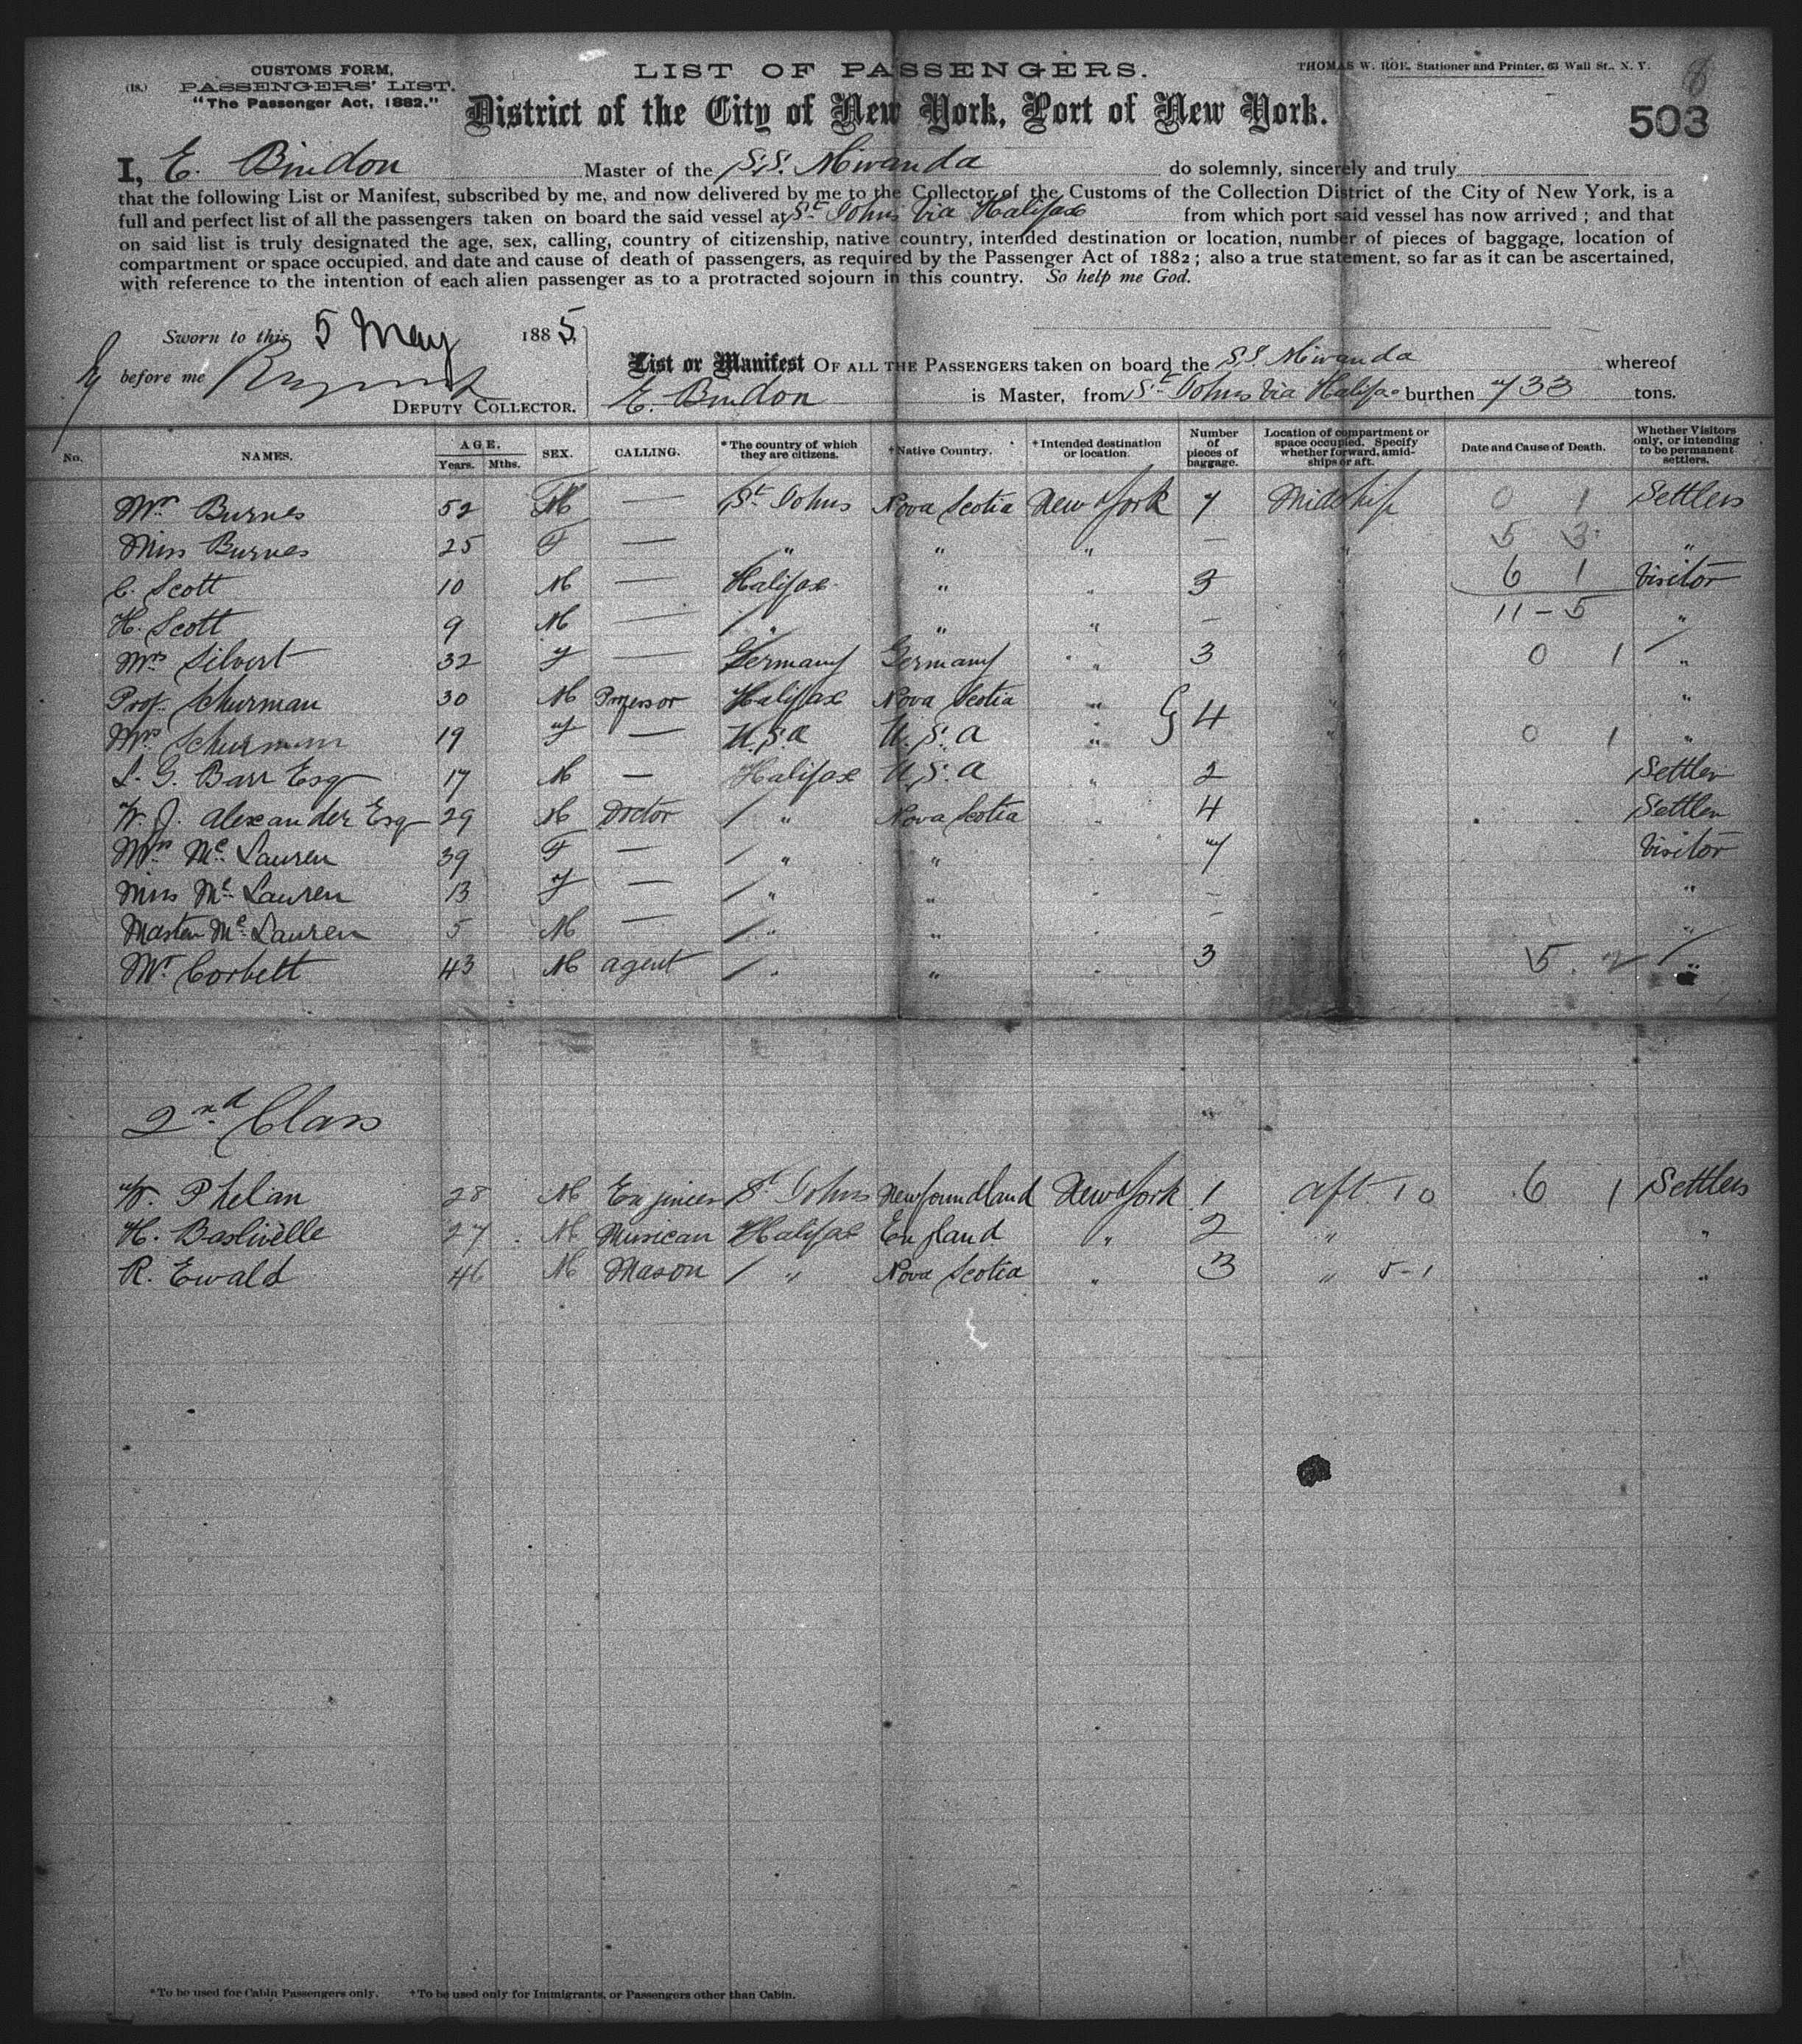 CUSTOMS FORM,
(18.) PASSENGERS' LIST.
"The Passenger Act, 1882."
LIST OF PASSENGERS.
THOMAS W. ROE, Stationer and Printer, 63 Wall St., N. Y.
District of the City of New York, Port of New York.
503
I, E. Bindon Master of the S.S. Miranda do solemnly, sincerely and truly
that the following List or Manifest, subscribed by me, and now delivered by me to the Collector of the Customs of the Collection District of the City of New York, is a
full and perfect list of all the passengers taken on board the said vessel at St Johns via Halifax from which port said vessel has now arrived; and that
on said list is truly designated the age, sex, calling, country of citizenship, native country, intended destination or location, number of pieces of baggage, location of
compartment or space occupied, and date and cause of death of passengers, as required by the Passenger Act of 1882; also a true statement, so far as it can be ascertained,
with reference to the intention of each alien passenger as to a protracted sojourn in this country. So help me God.
Sworn to this 5 May 1885
before me
DEPUTY COLLECTOR.
List or Manifest OF ALL THE PASSENGERS taken on board the S.S. Miranda whereof
E. Bindon is Master, from St Johns via Halifax burthen 733 tons.
No. NAMES. AGE. Years. Mths. SEX. CALLING. *The country of which they are citizens. †Native Country. †Intended destination or location. Number of pieces of baggage. Location of compartment or space occupied. Specify whether forward, amidships or aft. Date and Cause of Death. Whether Visitors only, or intending to be permanent settlers.
Mrs Burnes 52 F — St Johns Nova Scotia New York 7 Midship 0 1 Settlers
Miss Burnes 25 F — " " " — " 5 3 "
C. Scott 10 M — Halifax " " 3 " 6 1 Visitor
H. Scott 9 M — " " " — 11-5 "
Mrs Silvert 32 F — Germany Germany " 3 " 0 1 "
Prof. Schurman 30 M Professor Halifax Nova Scotia " 4 " "
Mrs Schurman 19 F — U.S.A U.S.A " " 0 1 "
L. G. Barr Esq 17 M — Halifax U.S.A " 2 Settler
W. J. Alexander Esq 29 M Doctor " Nova Scotia " 4 Settler
Mrs Mc Lauren 39 F — " " 7 Visitor
Miss Mc Lauren 13 F — " " " — "
Master Mc Lauren 5 M — " " " — "
Mr Corbett 43 M agent " " " 3 5 2 "
2nd Class
W. Phelan 28 M Engineer St Johns Newfoundland New York 1 aft 10 6 1 Settlers
H. Baslivelle 27 M Musican Halifax England " 2 " "
R. Ewald 46 M Mason " Nova Scotia " 3 " 5-1 "
*To be used for Cabin Passengers only. †To be used only for Immigrants, or Passengers other than Cabin.